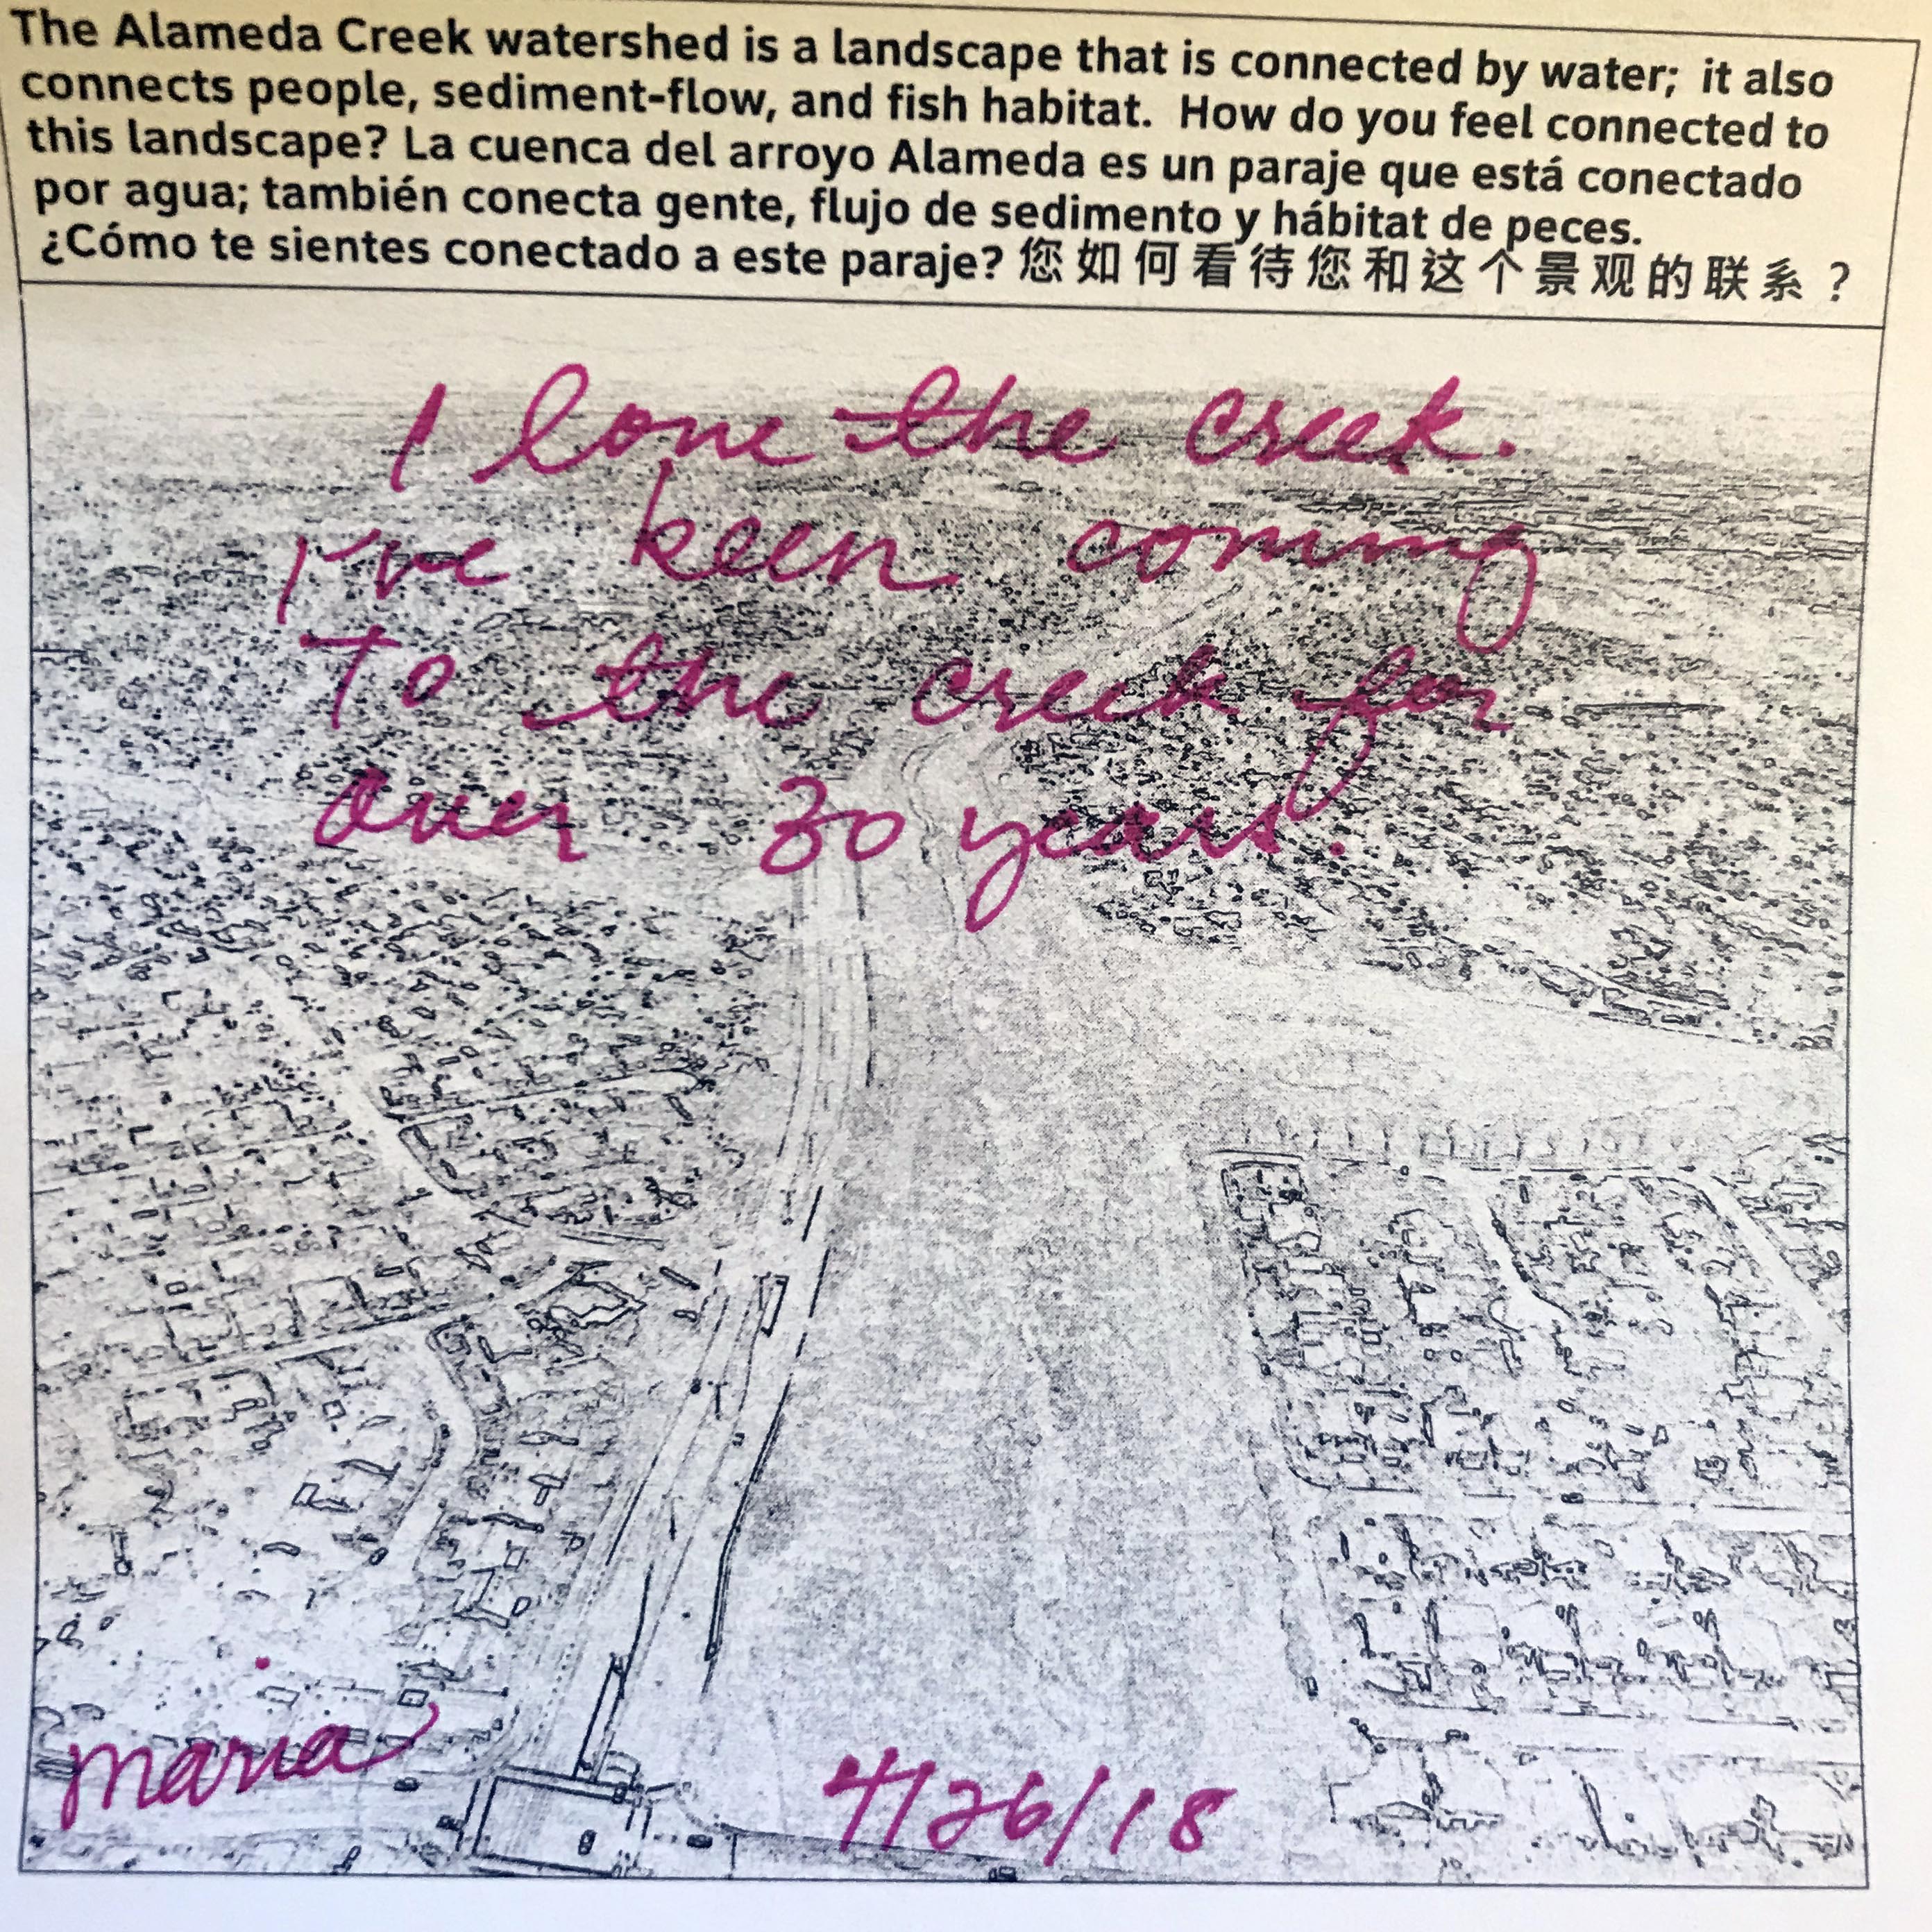 The Alameda Creek watershed is a landscape that is connected by water; it also
connects people, sediment-flow, and fish habitat. How do you feel connected to
this landscape? La cuenca del arroyo Alameda es un paraje que está conectado
por agua; también conecta gente, flujo de sedimento y hábitat de peces.
¿Cómo te sientes conectado a este paraje? 您如何看待您和这个景观的联系？
I love the creek.
I've been coming
To the creek for
over 30 years.
maria
4/26/18